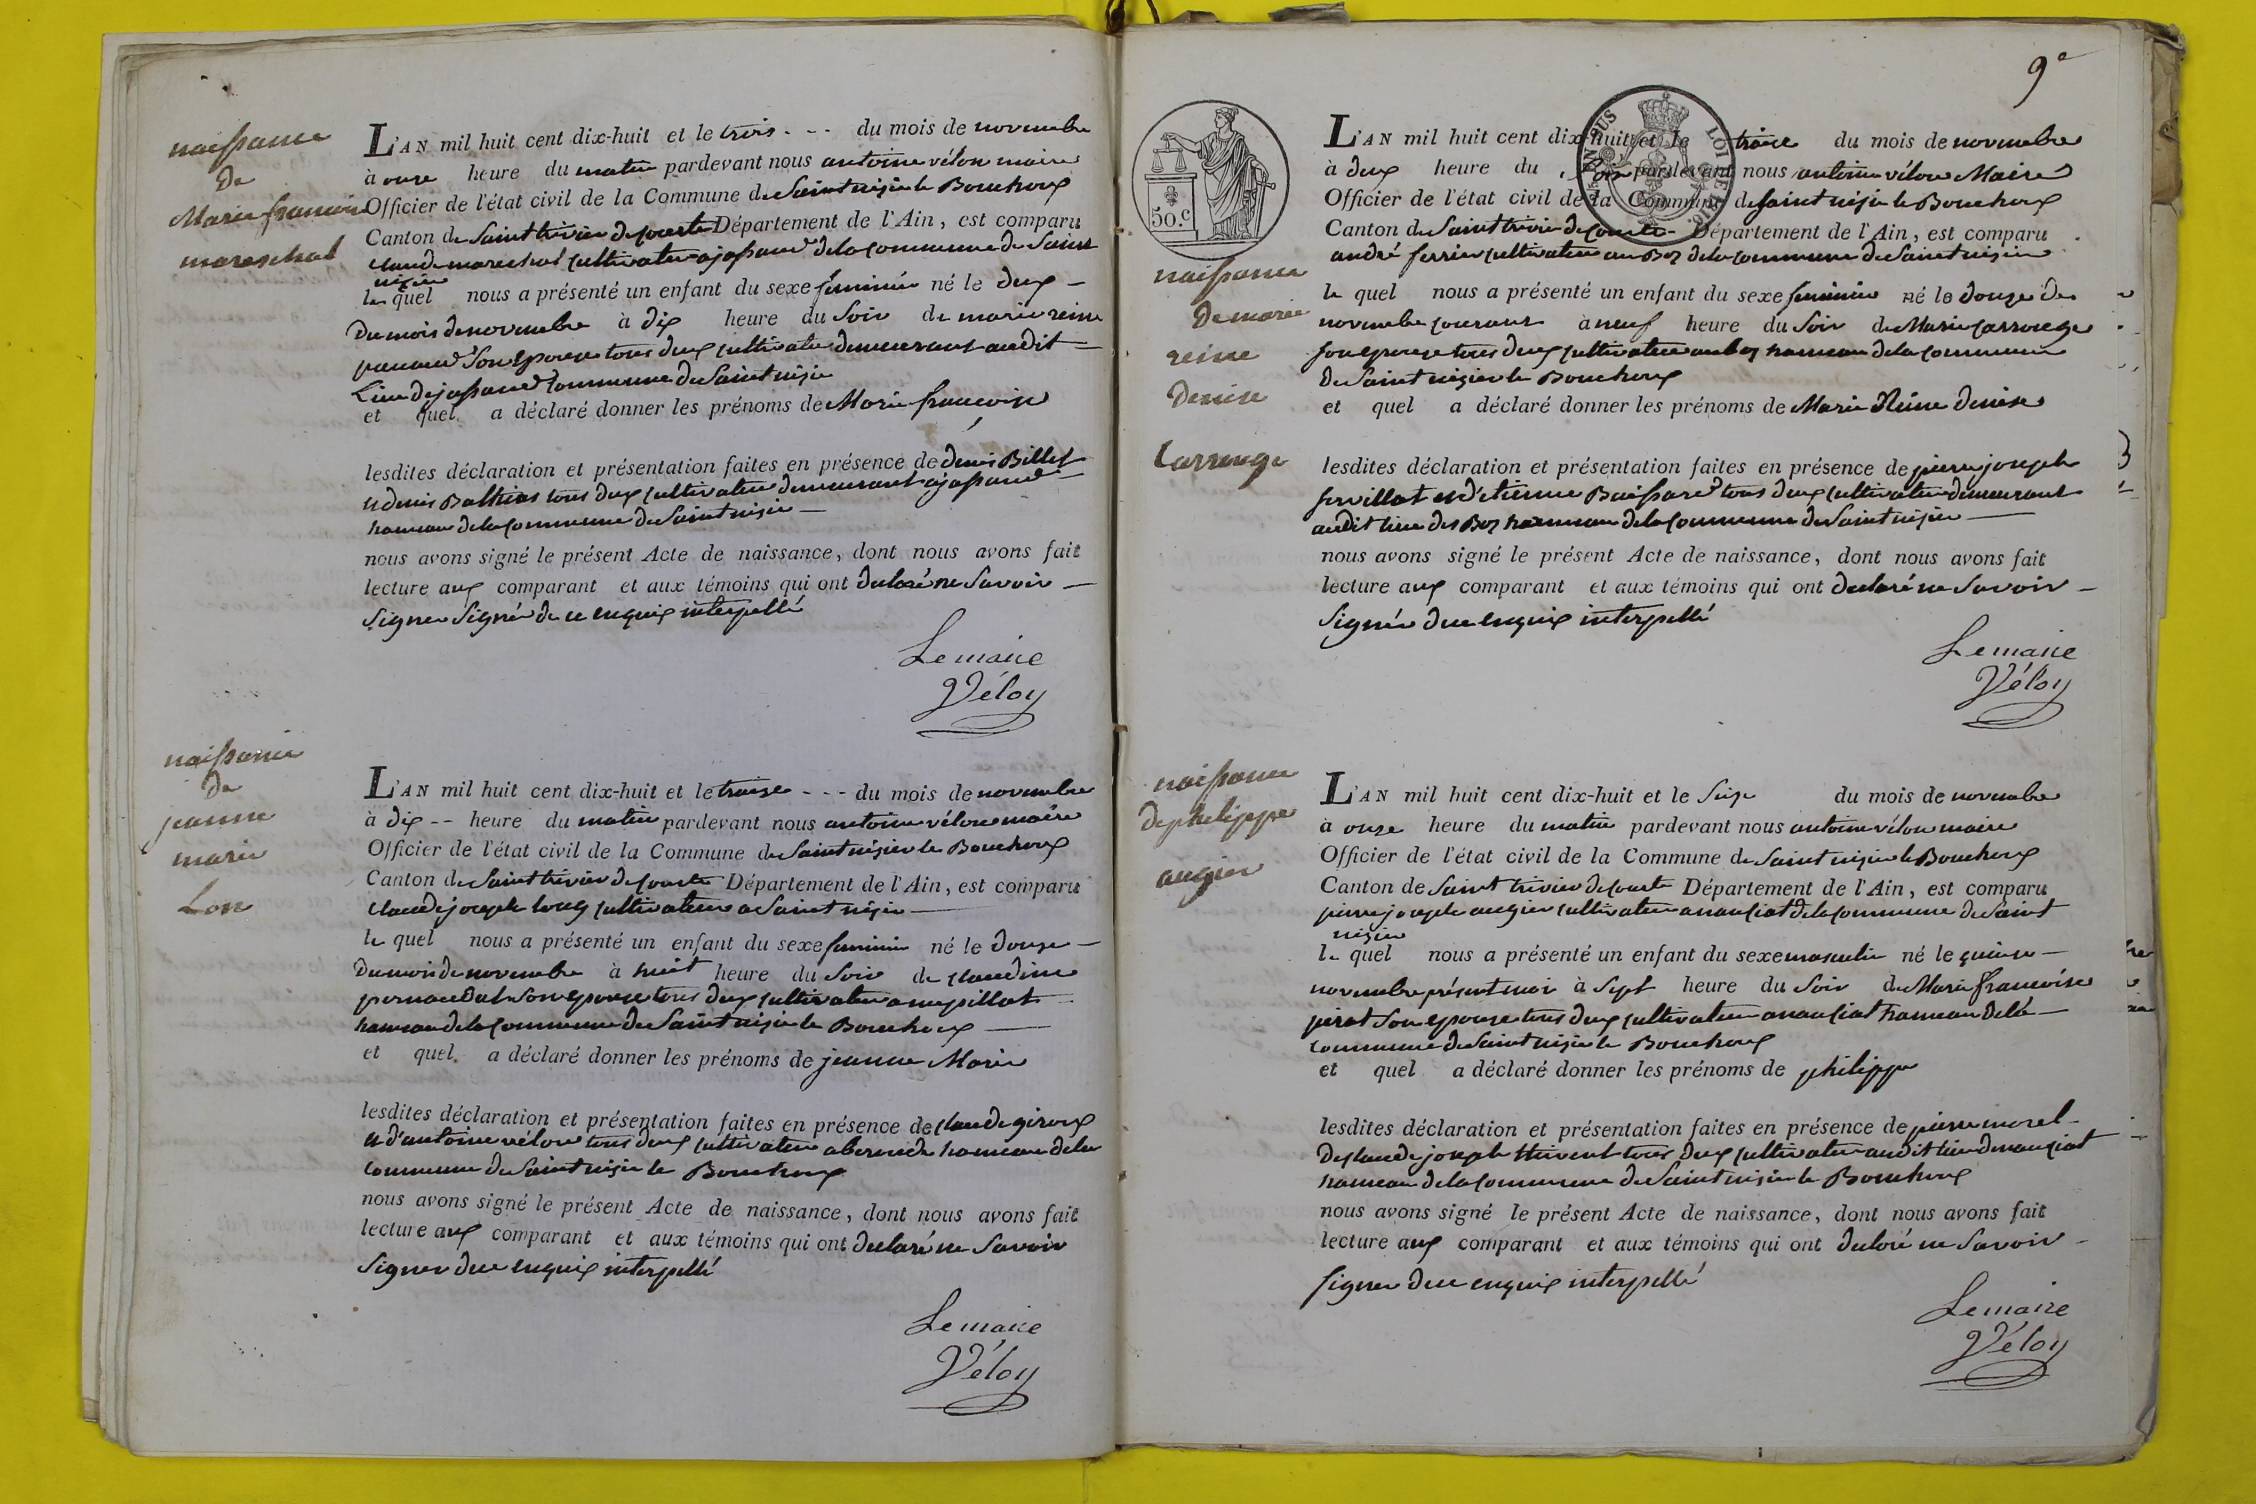 naissance
de
Marie francoise
mareschal
L'AN mil huit cent dix-huit et le trois - - - du mois de novembre
à onze heure du matin pardevant nous antoine vélon maire
Officier de l'état civil de la Commune de Saint nizier le Bouchoux
Canton de Saint trivier de courte Département de l'Ain, est comparu
claude mareschal cultivateur a jassand de la commune de Saint
nizier
le quel nous a présenté un enfant du sexe feminin né le deux -
du mois de novembre à dix heure du Soir de marie reine
son epouse tous deux cultivateur demeurant audit
Lieu de jassand commune de Saint nizier
et quel a déclaré donner les prénoms de Marie francoise
lesdites déclaration et présentation faites en présence de denis Billet
et denis Bathias tous deux cultivateur demeurant a jassand
hameau de la commune de Saint nizier —
nous avons signé le présent Acte de naissance, dont nous avons fait
lecture aux comparant et aux témoins qui ont declaré ne Savoir —
Signer Signé de ce enquis interpellé
Le maire
Véloy
naissance
de
jeanne
marie
Lon
L'AN mil huit cent dix-huit et le traize - - - du mois de novembre
à dix -- heure du matin pardevant nous antoine vélon maire
Officier de l'état civil de la Commune de Saint nizier le Bouchoux
Canton de Saint trivier de courte Département de l'Ain, est comparu
claude joseph long cultivateur a Saint nizier —
le quel nous a présenté un enfant du sexe feminin né le douze —
du mois de novembre à huit heure du Soir de claudine
son epouse tous deux cultivateur
hameau de la commune de Saint nizier le Bouchoux —
et quel a déclaré donner les prénoms de jeanne Marie
lesdites déclaration et présentation faites en présence de claude giroux
et d'antoine vélon tous deux cultivateur hameau de la
commune de Saint nizier le Bouchoux
nous avons signé le présent Acte de naissance, dont nous avons fait
lecture aux comparant et aux témoins qui ont declaré ne Savoir
Signer de ce enquis interpellé
Le maire
Véloy
9e
50.c
LOI DE 1816.
naissance
de marie
reine
denise
Carrouge
L'AN mil huit cent dix-huit et le traize du mois de novembre
à deux heure du Soir pardevant nous antoine vélon Maire
Officier de l'état civil de la Commune de Saint nizier le Bouchoux
Canton de Saint trivier de courte - Département de l'Ain, est comparu
andré ferrier cultivateur au Boz de la commune de Saint nizier
le quel nous a présenté un enfant du sexe feminin né le douze de
novembre courant à neuf heure du Soir de Marie Carrouge
son epouse tous deux cultivateur au boz hameau de la commune
de Saint nizier le Bouchoux
et quel a déclaré donner les prénoms de Marie Reine denise
lesdites déclaration et présentation faites en présence de pierre joseph
servillat et d'etienne Buissard tous deux cultivateur demeurant
audit lieu des Boz hameau de la commune de Saint nizier —
nous avons signé le présent Acte de naissance, dont nous avons fait
lecture aux comparant et aux témoins qui ont declaré ne Savoir —
Signér de ce enquis interpellé
Le maire
Véloy
naissance
de philippe
augier
L'AN mil huit cent dix-huit et le Seize du mois de novembre
à onze heure du matin pardevant nous antoine vélon maire
Officier de l'état civil de la Commune de Saint nizier le Bouchoux
Canton de Saint trivier de courte Département de l'Ain, est comparu
pierre joseph augier cultivateur a nanciat de la commune de Saint
nizier
le quel nous a présenté un enfant du sexe masculin né le quinze —
novembre présent moi à Sept heure du Soir de Marie francoise
pirat Son epouse tous deux cultivateur a nanciat hameau de la —
commune de Saint nizier le Bouchoux
et quel a déclaré donner les prénoms de philippe
lesdites déclaration et présentation faites en présence de pierre morel -
de claude joseph thivent tous deux cultivateur audit lieu de nanciat
hameau de la commune de Saint nizier le Bouchoux
nous avons signé le présent Acte de naissance, dont nous avons fait
lecture aux comparant et aux témoins qui ont declaré ne Savoir -
Signer de ce enquis interpellé
Le maire
Véloy